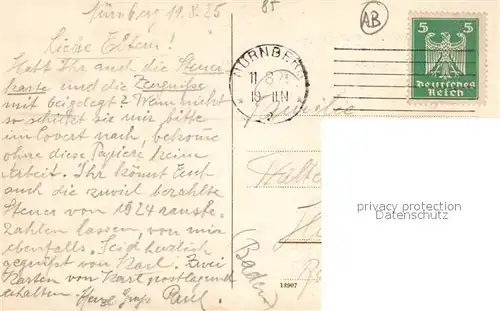 Nürnberg 19.8.25
85
AB
Liebe Eltern!
Habt Ihr auch die Steuer
karte und die Zeugnisse
mit beigelegt? Wenn nicht
so schickt sie mir bitte
im Covert nach, bekomme
ohne diese Papiere keine
Arbeit. Ihr könnt Euch
auch die zuviel bezahlte
Steuer von 1924 rausbe-
zahlen lassen, von mir
ebenfalls. Seid herzlich
gegrüßt von Karl. Zwei
Karten von Karl postlagernd
erhalten. Herzl. Gruß Paul.
NÜRNBERG
5 5
Deutsches
Reich
privacy protection
Datenschutz
(Baden)
13907